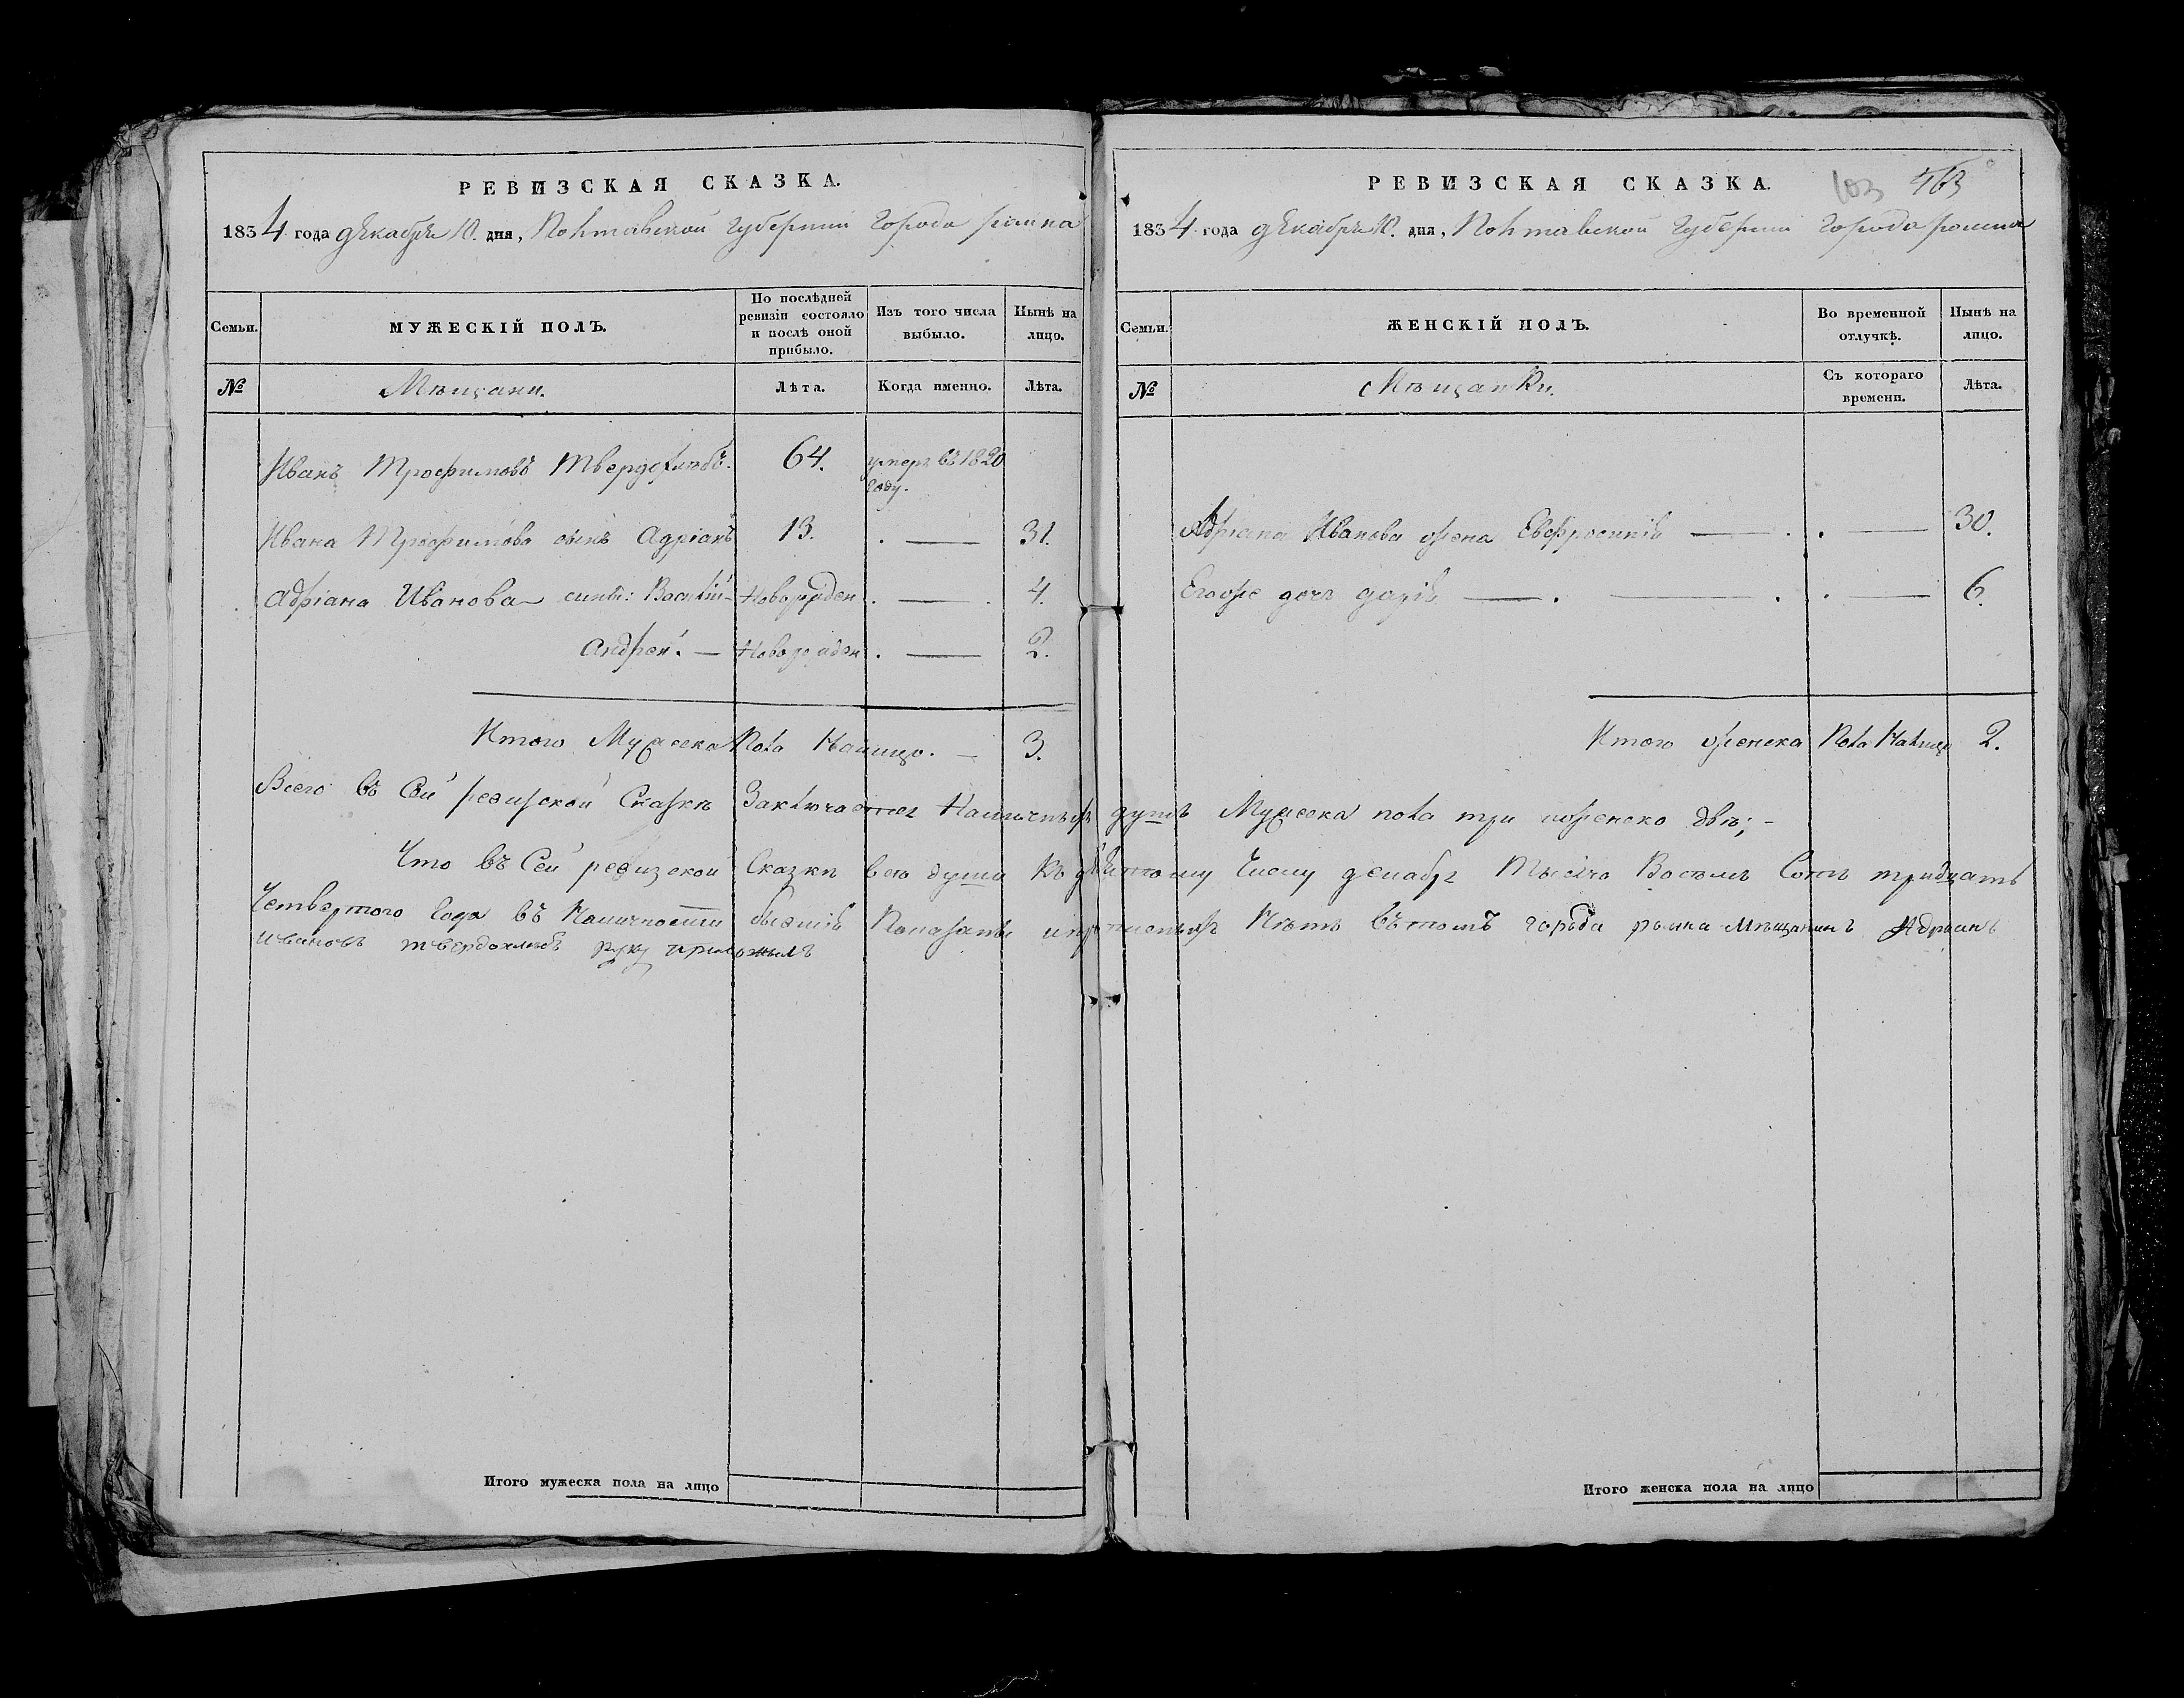 РЕВИЗСКАЯ СКАЗКА.
1834 года декабря 10. дня, Полтавской губернии города ромна
Семьи.
МУЖЕСКІЙ ПОЛЪ.
По послѣдней ревизіи состояло и послѣ оной прибыло.
Изъ того числа выбыло.
Нынѣ на лицо.
№
Мѣщани.
Лѣта.
Когда именно.
Лѣта.
Иванъ Трофимовъ Твердохлѣбъ. 64. умеръ въ 1820 году.
Ивана Трофимова сынъ Адріанъ 13. . — 31.
Адріана Иванова сини: Василій — Новорожден . — . 4.
Андрей. — Новорожден . — 2.
Итого Мужеска Пола Налицо. — 3.
РЕВИЗСКАЯ СКАЗКА.
103 463
1834 года декабря 10. дня, Полтавской губернии города ромна
Семьи.
ЖЕНСКІЙ ПОЛЪ.
Во временной отлучкѣ.
Нынѣ на лицо.
№
Мѣщанки.
Съ котораго времени.
Лѣта.
Адріана Иванова жена Евфросинія — . . — 30.
Егоже дочь дарія — . — . . — 6.
Итого женска Пола Налицо 2.
Всего въ Сей ревизской Сказкѣ Заключается Наличныхъ душъ Мужеска пола три иженско двѣ; -
Что въ Сей ревизской Сказкѣ всѣ души Къ Числу декабря Тысяча Восемъ Сотъ тридцать
Четвертого Года въ Наличности бывшія Показаны Нѣтъ въ томъ города ромна мѣщанинъ Адріанъ
Ивановъ твердохлѣбъ руку приложилъ
Итого мужеска пола на лицо
Итого женска пола на лицо